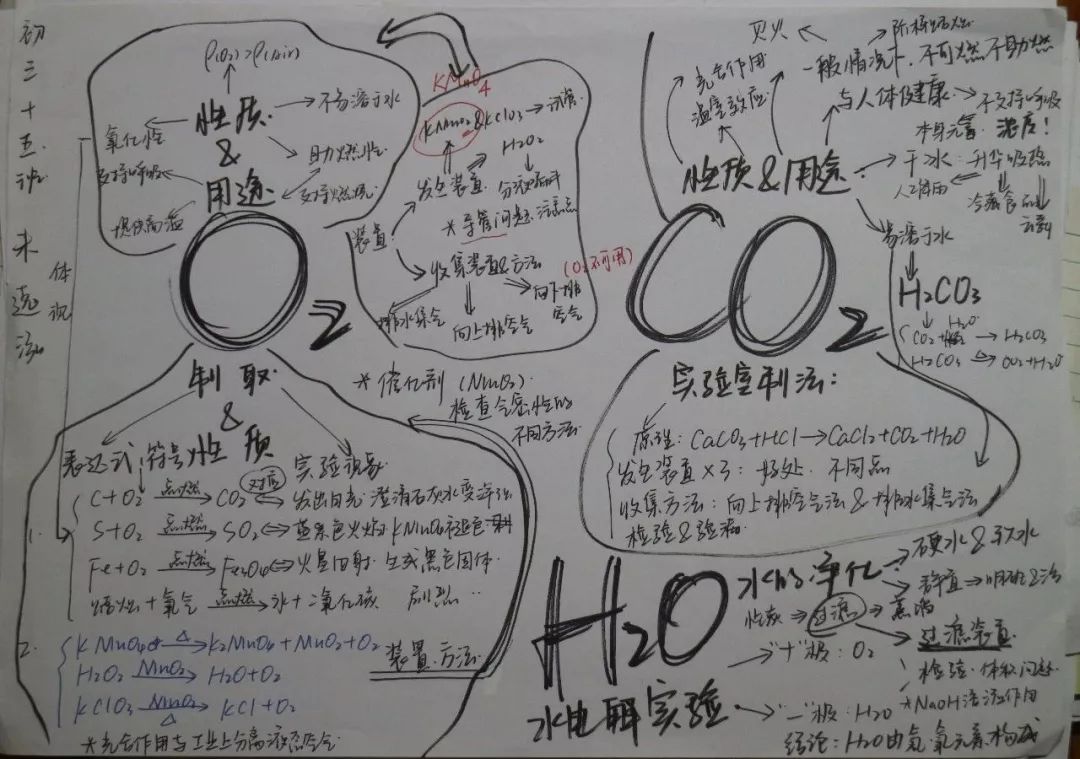 初三十五班
ρ(O2)>ρ(Air)
性质
&
用途
不易溶于水
氧化性
助燃性
支持呼吸
支持燃烧
O2
KMnO4
KMnO2&KClO3
H2O2
发生装置
*导管问题
装置
收集装置&方法
(O2不可用)
排水集气
向上排空气
向下排空气
制取
&
性质
*催化剂(MnO2)
检查气密性的
不同方法
表达式:符号
实验现象
1.
C+O2 点燃→ CO2 对应 发出白光 澄清石灰水变浑浊
S+O2 点燃→ SO2 蓝紫色火焰 KMnO4
Fe+O2 点燃→ Fe3O4 火星四射 生成黑色固体
蜡烛+氧气 点燃→ 水+二氧化碳
2.
KMnO4 △→ K2MnO4+MnO2+O2
H2O2 MnO2→ H2O+O2
KClO3 MnO2 △→ KCl+O2
装置 方法
*光合作用与工业上分离液态空气
灭火
光合作用
温室效应
一般情况下,不可燃不助燃
与人体健康
不支持呼吸
本身无毒 浓度!
性质&用途
干冰:升华吸热
人工降雨
冷藏食品
云雾
易溶于水
CO2
H2CO3
CO2+H2O→H2CO3
H2CO3→CO2+H2O
实验室制法:
原理:CaCO3+HCl→CaCl2+CO2+H2O
发生装置×3:好处 不同点
收集方法:向上排空气法&排水集气法
检验&验满
H2O
水的净化
硬水&软水
静置→明矾
过滤→蒸馏
过滤装置
水电解实验
"+"极:O2
"-"极:H2O
检验·体积问题
*NaOH溶液作用
结论:H2O由氢、氧元素构成